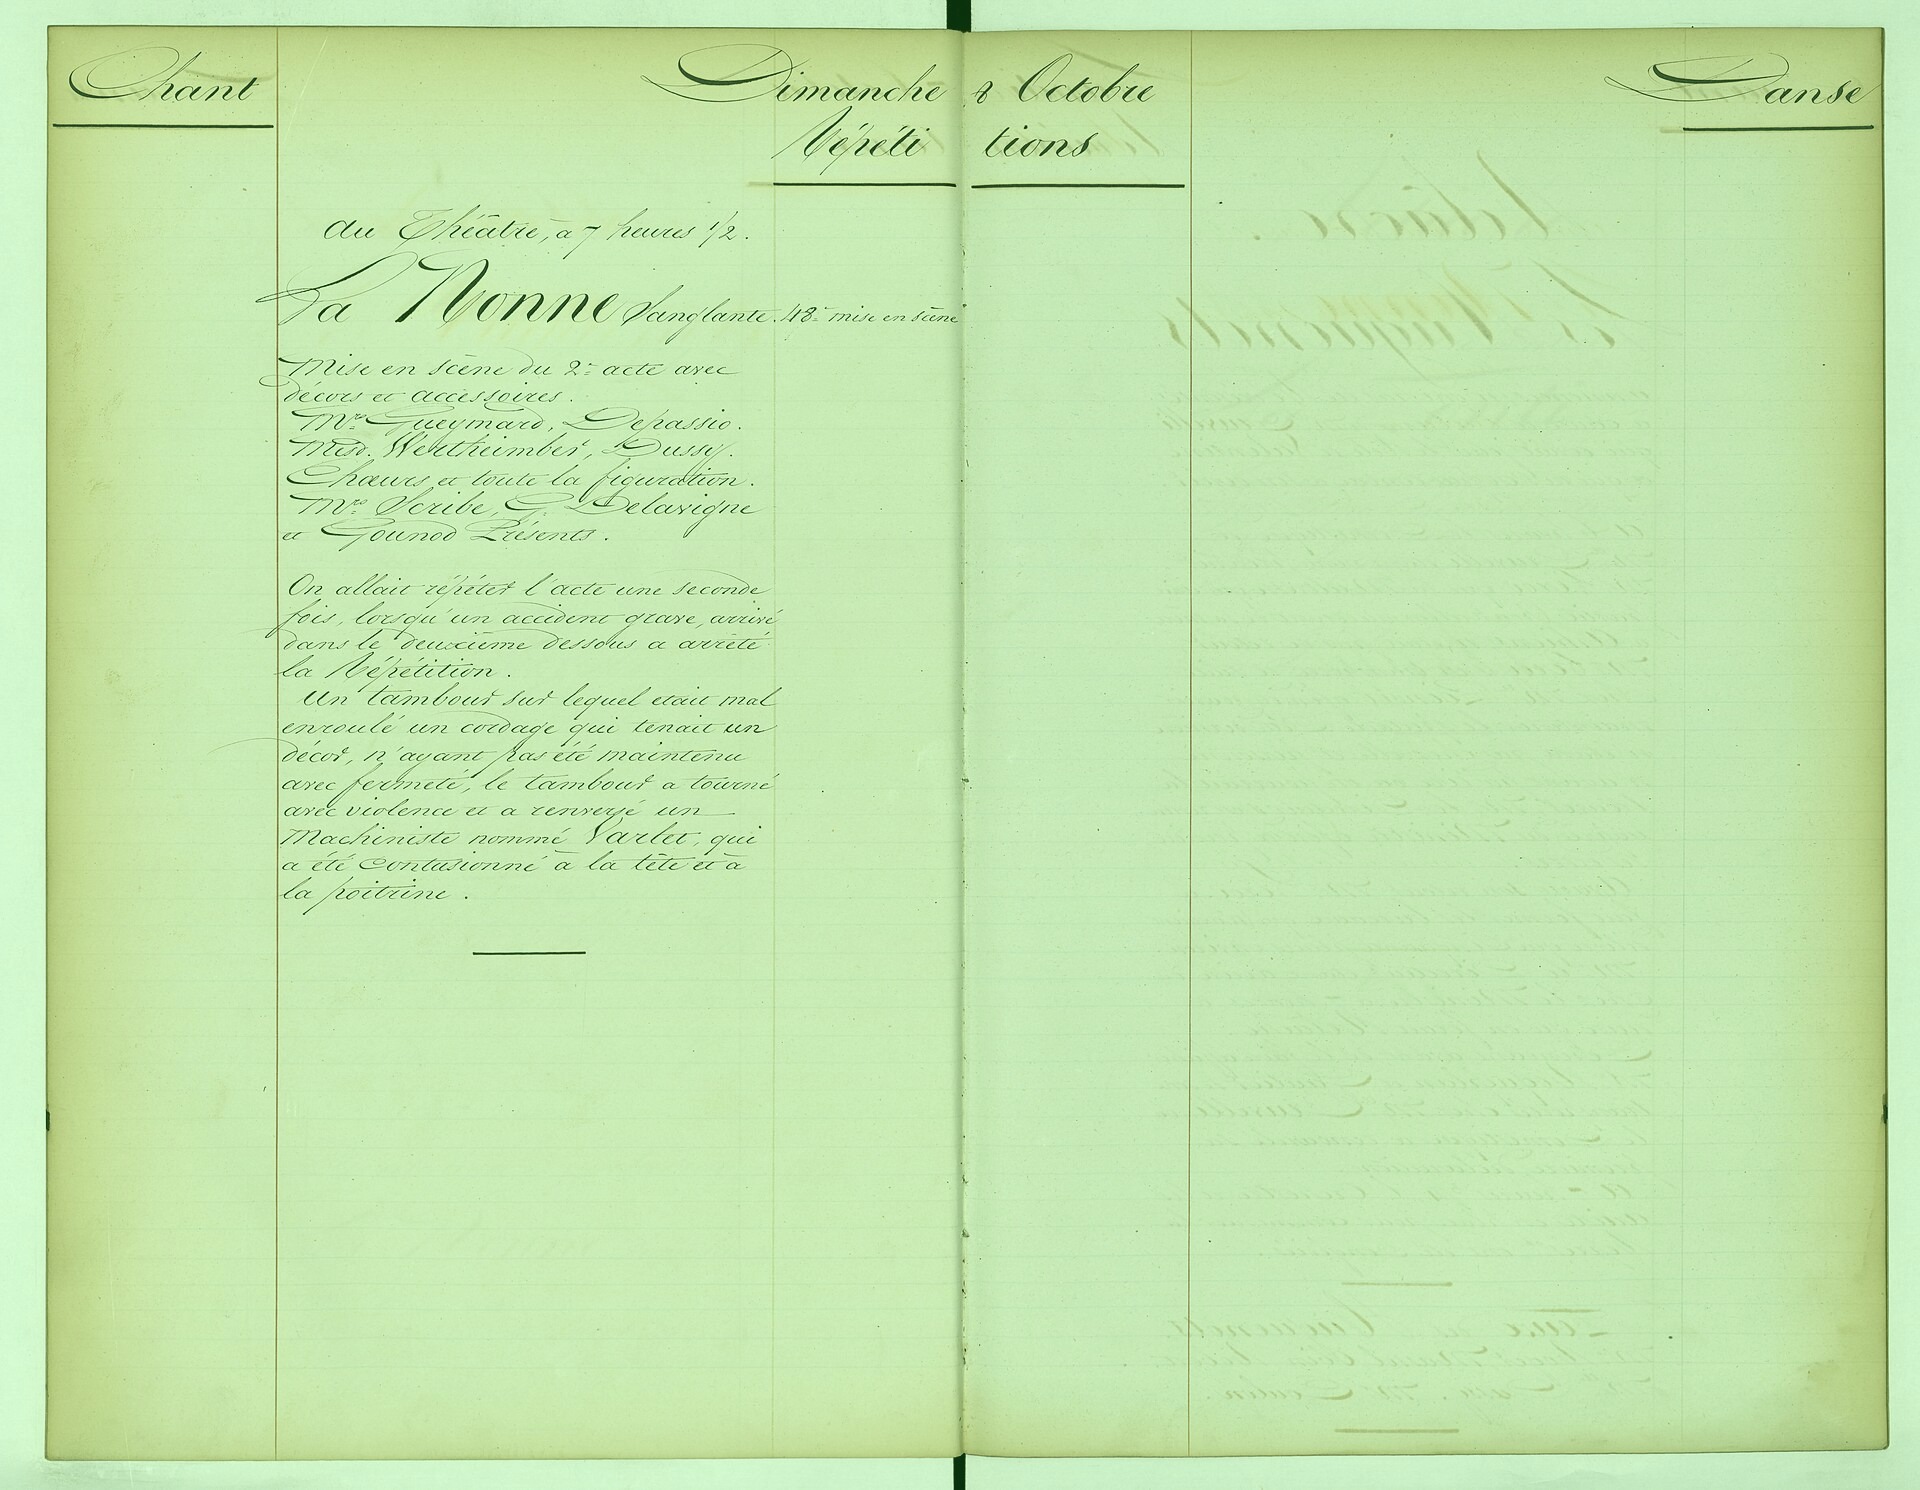 Chant
Dimanche 8 Octobre
Danse
Répétitions
au Théâtre, à 7 heures 1/2.
La Nonne Sanglante. 48e mise en scène
Mise en scène du 2e acte avec
décors et accessoires.
Mrs Gueymard, Depassio.
Mesd. Wertheimber, Dussy.
Chœurs et toute la figuration.
Mrs Scribe, G. Delavigne
et Gounod Présents.
On allait répéter l'acte une seconde
fois, lorsqu'un accident grave, arrivé
dans le deuxième dessous a arrêté
la Répétition.
Un tambour sur lequel etait mal
enroulé un cordage qui tenait un
décor, n'ayant pas été maintenu
avec fermeté, le tambour a tourné
avec violence et a renversé un
Machiniste nommé Varlet, qui
a été contusionné à la tête et à
la poitrine.